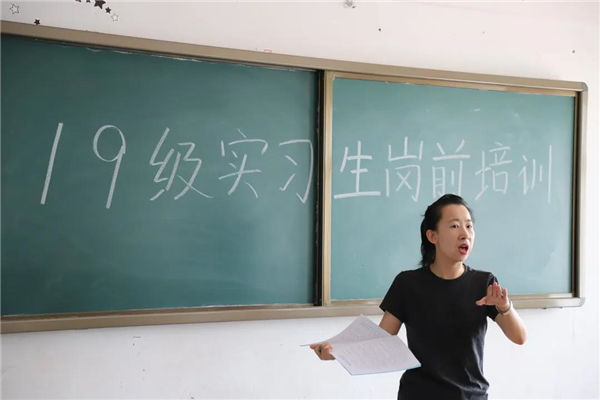 19级实习生岗前培训